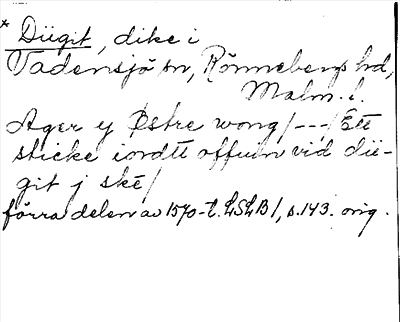 * Diigit, dike i
Vadensjö sn, Rönnebergs hd,
Malm. l.
Ager y Østre wong/---/Ett
sticke iordtt offuen vid dii-
git j ske/
förra delen av 1570-t. LSLB1, s.143. orig.